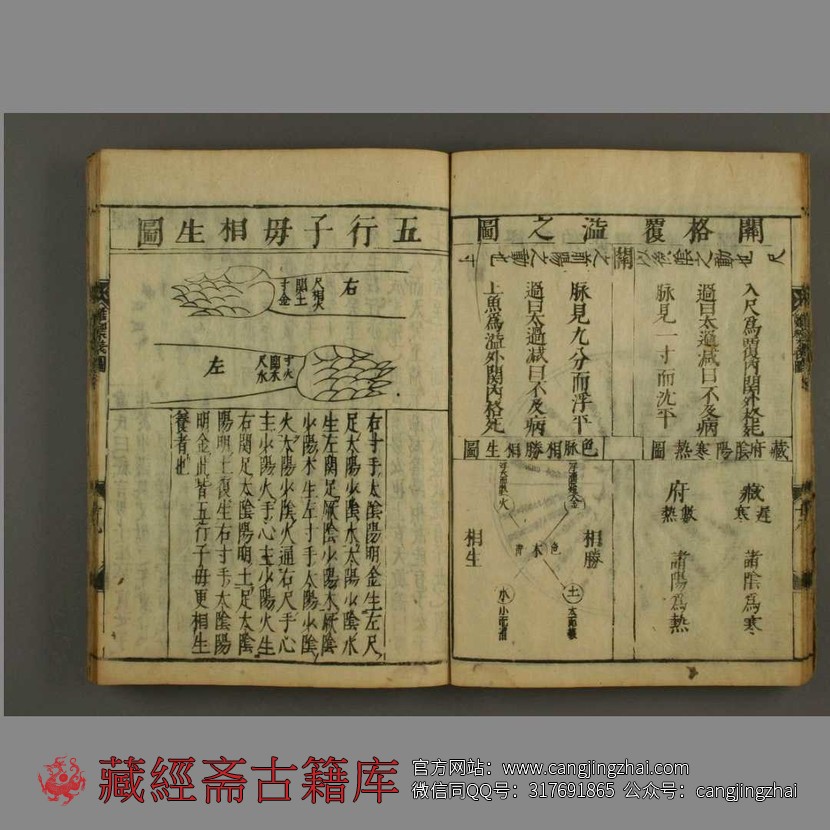 關格覆溢之圖
入尺爲覆內關外格死
過曰太過減曰不及病
脉見一寸而沈平
脉見九分而浮平
過曰太過減曰不及病
上魚爲溢外關內格死
藏府陰陽寒熱圖
藏 遲寒 諸陰爲寒
府 數熱 諸陽爲熱
色脉相勝相生圖
相勝
相生
青木色
火
土
水
五行子母相生圖
右
尺相火
關土
寸金
左
寸火
關木
尺水
右寸手太陰陽明金生左尺
足太陽少陰水太陽少陰水
生左關足厥陰少陽木厥陰
少陽木生左寸手太陽少陰
火太陽少陰火通右尺手心
主少陽火手心主少陽火生
右關足太陰陽明土足太陰
陽明土復生右寸手太陰陽
明金此皆五行子母更相生
養者也
藏經斋古籍库
官方网站：www.cangjingzhai.com
微信同QQ号：317691865 公众号：cangjingzhai